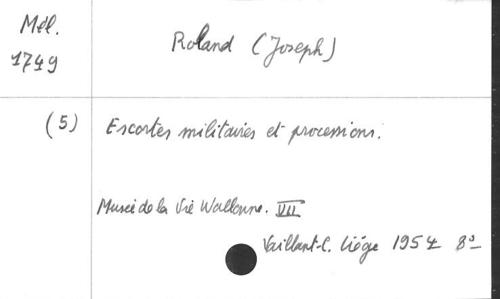 Mél.
1749
Roland (Joseph)
(5)
Escortes militaires et processions.
Musée de la Vie Wallonne. VII
Vaillant-C. Liége 1954 8º